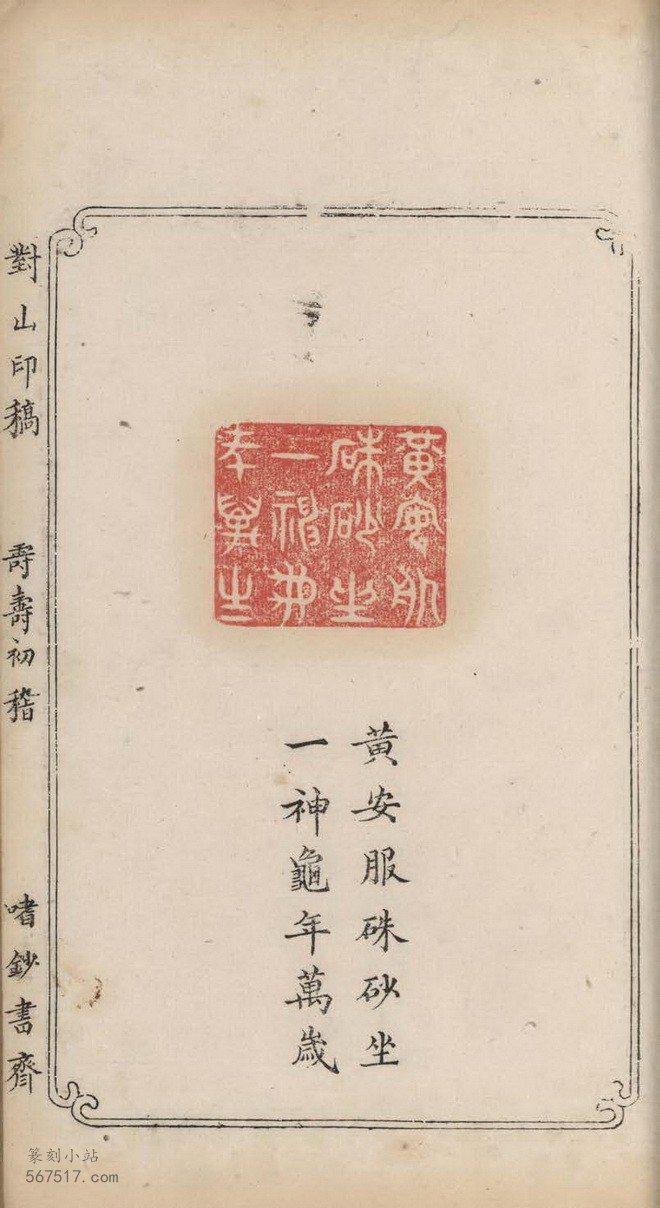 黃安服
硃砂坐
一神龜
年萬歲
黃安服硃砂坐
一神龜年萬歲
對山印稿 壽壽初稽 嗜鈔書齊
篆刻小站
567517.com